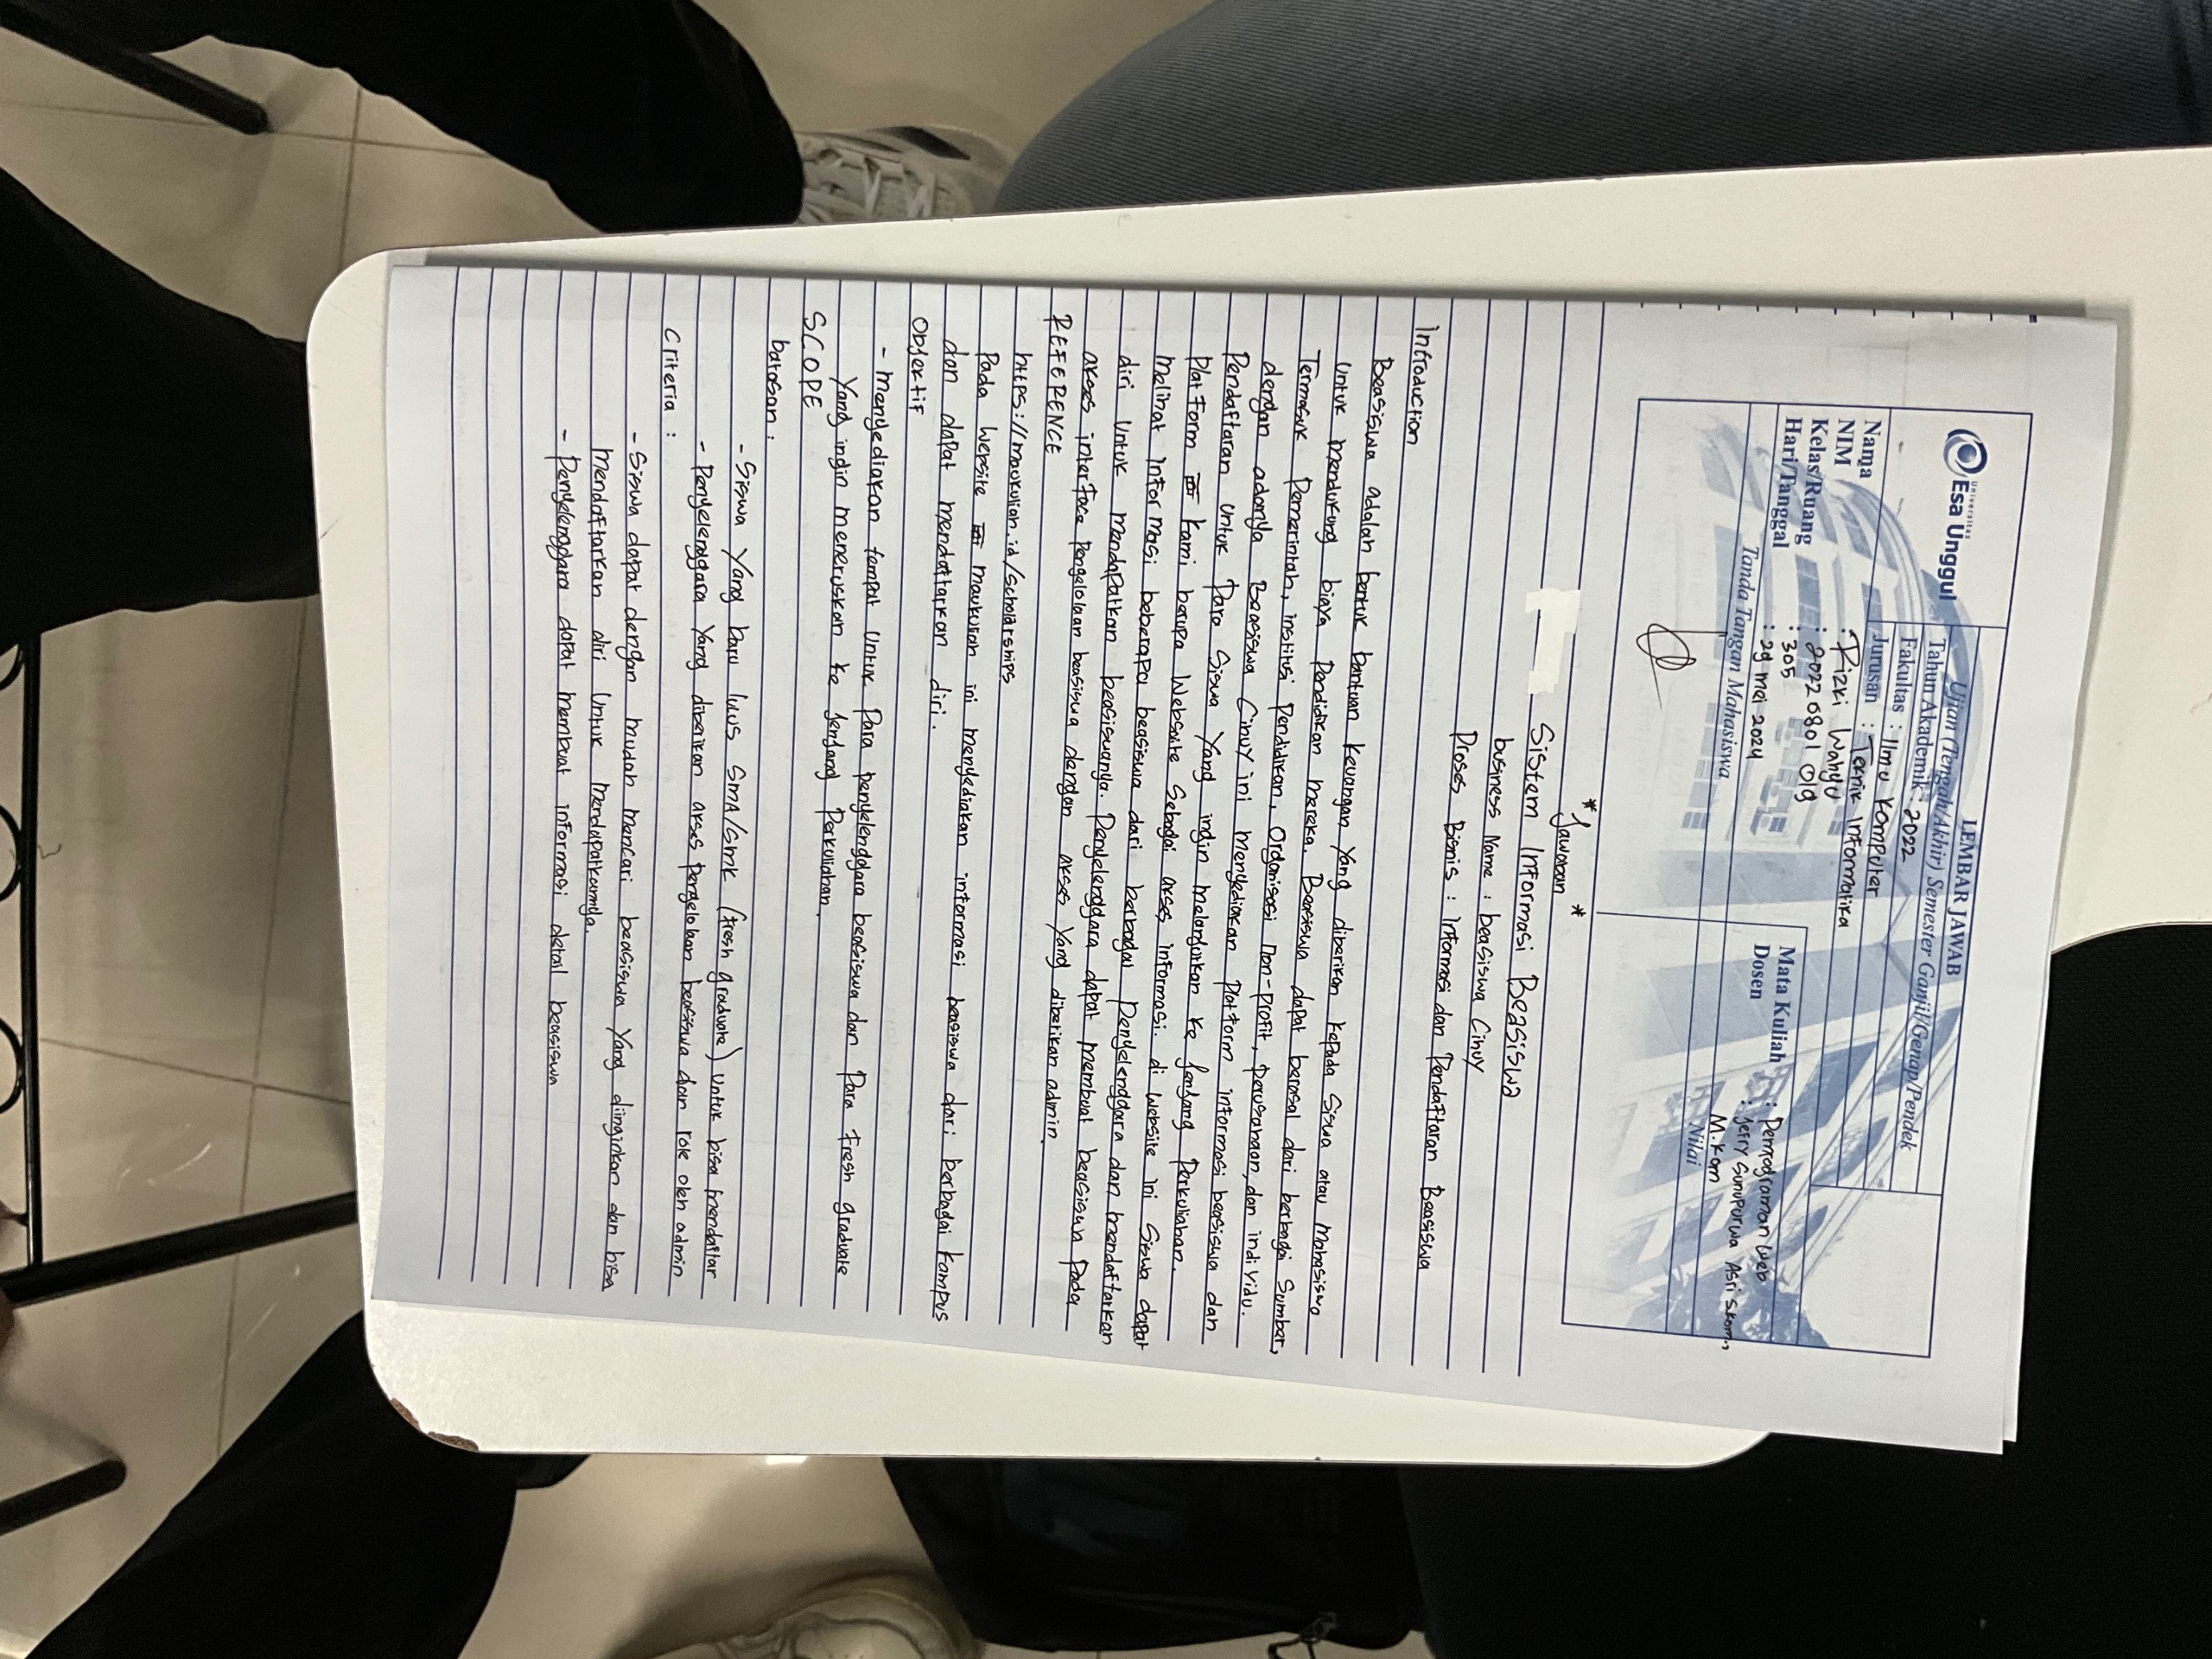 Universitas
Esa Unggul
LEMBAR JAWAB
Ujian (Tengah/Akhir) Semester Ganjil/Genap/Pendek
Tahun Akademik : 2022
Fakultas : Ilmu Komputer
Jurusan : Teknik Informatika
Nama : Rizki Wahyu
NIM : 2022 0801 019
Kelas/Ruang : 305
Hari/Tanggal : 29 mei 2024
Mata Kuliah : Pemrograman Web
Dosen : Jefry Sunupurwa Asri S.kom.,
M.kom
Tanda Tangan Mahasiswa
Nilai
* Jawaban *
Sistem Informasi Beasiswa
business Name : beasiswa Cihuy
Proses Bisnis : Informasi dan Pendaftaran Beasiswa
Introduction
Beasiswa adalah bentuk bantuan keuangan yang diberikan kepada Siswa atau mahasiswa
untuk mendukung biaya Pendidikan mereka. Beasiswa dapat berasal dari berbagai Sumber,
Termasuk Pemerintah, institusi Pendidikan, Organisasi Non-profit, perusahaan, dan individu.
dengan adanya Beasiswa Cihuy ini menyediakan Platform informasi beasiswa dan
Pendaftaran untuk Para Siswa yang ingin melanjutkan ke jenjang Perkuliahan.
Platform kami berupa Website Sebagai akses informasi. di Website ini Siswa dapat
melihat Informasi beberapa beasiswa dari berbagai Penyelenggara dan mendaftarkan
diri untuk mendapatkan beasiswanya. Penyelenggara dapat membuat beasiswa Pada
akses interface Pengelolaan beasiswa dengan akses yang diberikan admin.
REFERENCE
https://maukuliah.id/scholarships
Pada website maukuliah ini menyediakan informasi beasiswa dari berbagai kampus
dan dapat mendaftarkan diri.
Objektif
- menyediakan tempat untuk Para penyelenggara beasiswa dan Para fresh graduate
Yang ingin meneruskan ke Jenjang Perkuliahan.
SCOPE
batasan :
- Siswa Yang baru lulus SMA/SMK (fresh graduate) untuk bisa mendaftar
- Penyelenggara Yang diberikan akses Pengelolaan beasiswa dan role oleh admin
Criteria :
- Siswa dapat dengan mudah mencari beasiswa Yang diinginkan dan bisa
mendaftarkan diri untuk mendapatkannya.
- Penyelenggara dapat membuat informasi detail beasiswa